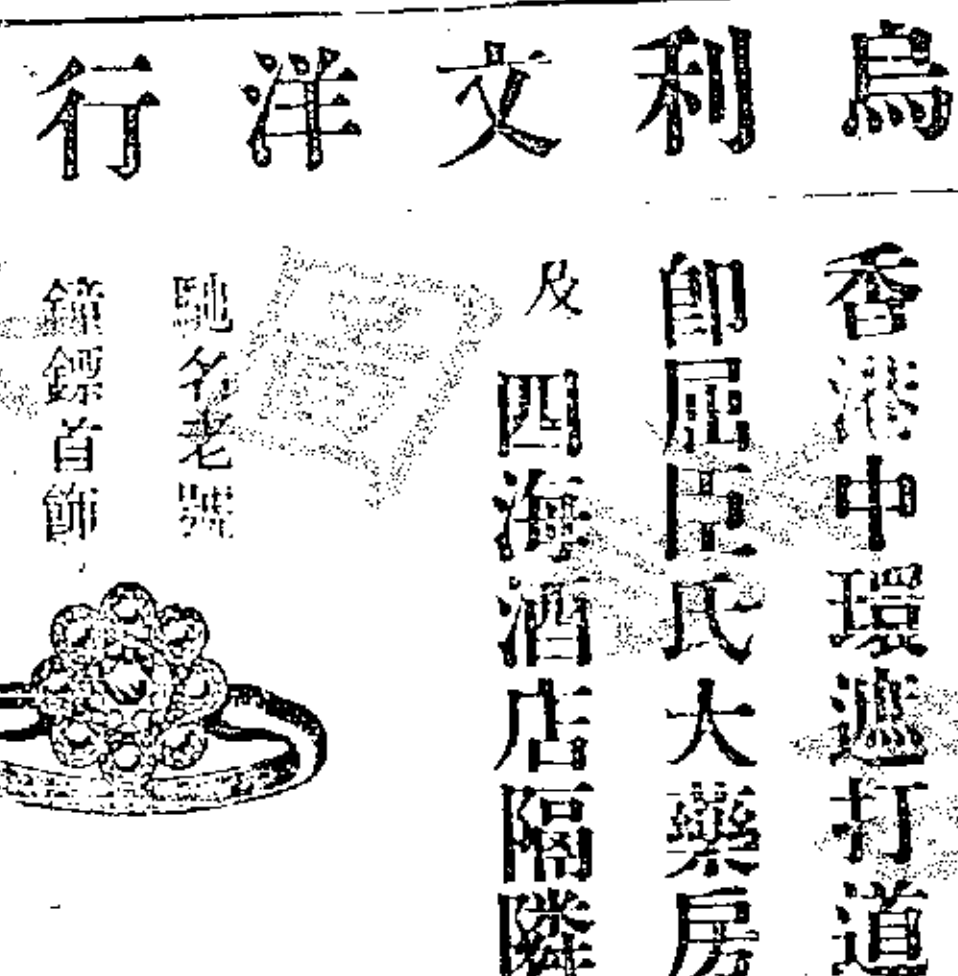 烏利文洋行
香港中環遮打道
即屈臣氏大藥房
及四海酒店隔隣
馳名老號
鐘鏢首飾